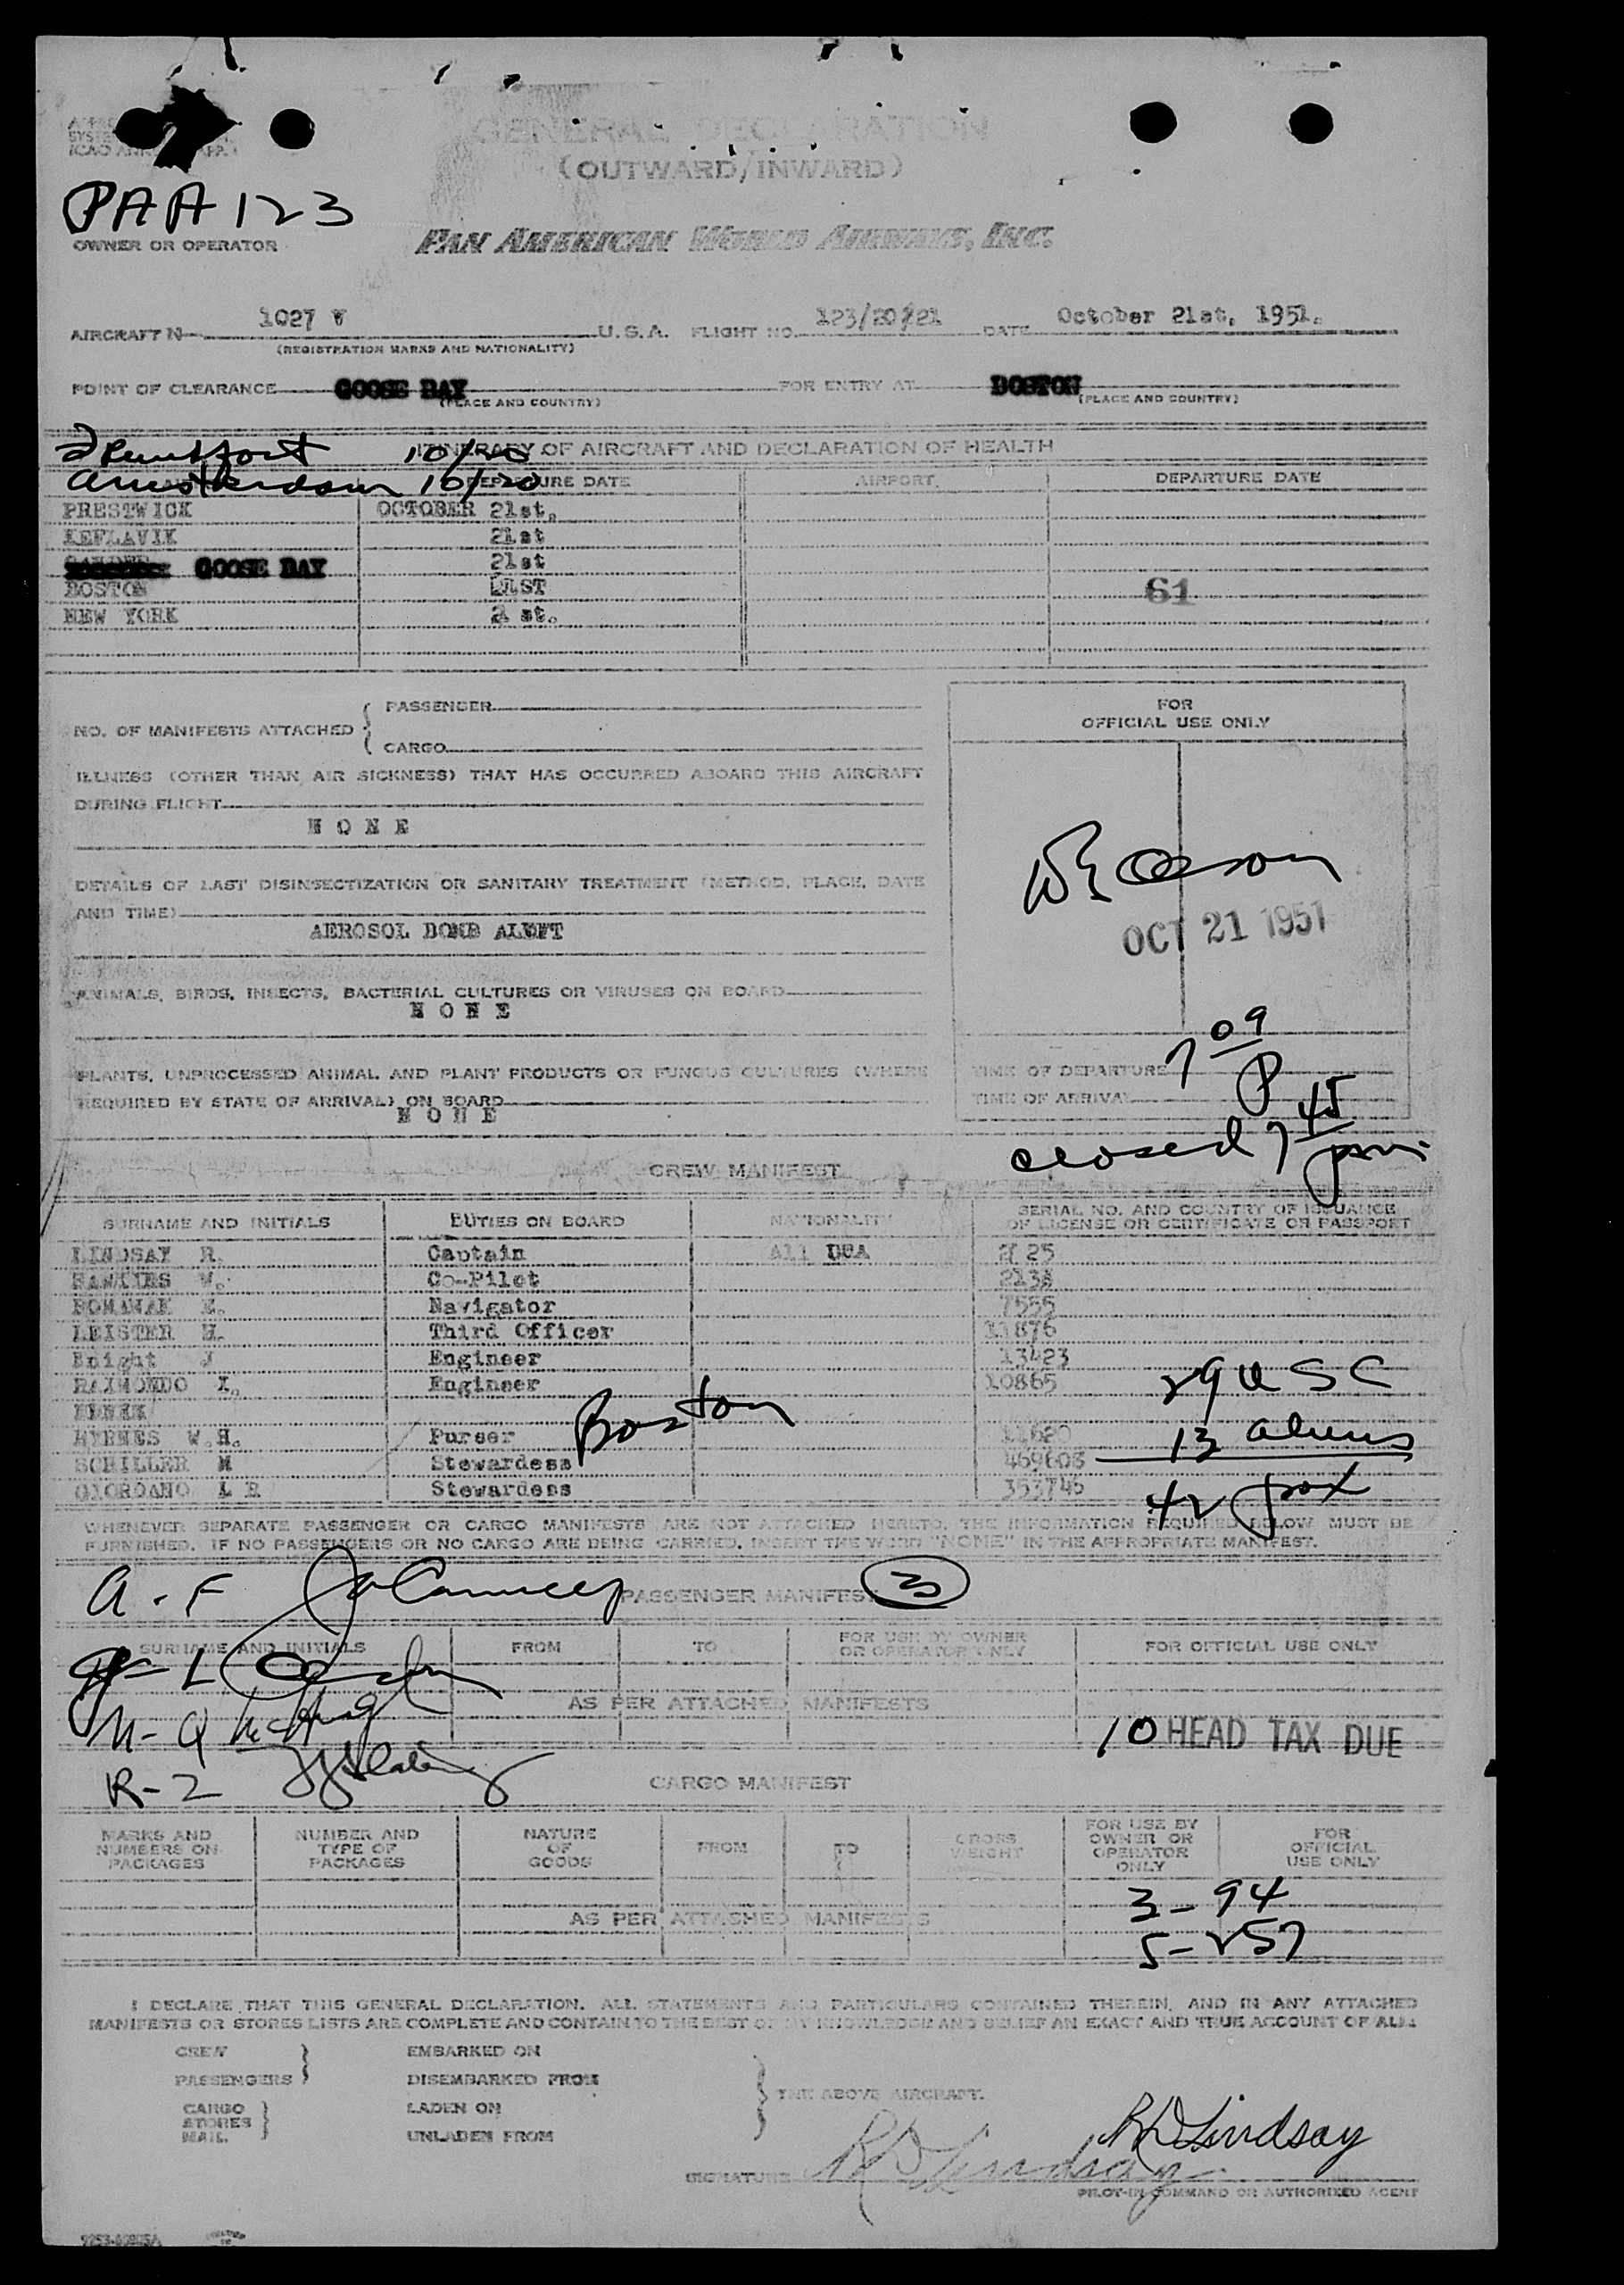 GENERAL DECLARATION
(OUTWARD/INWARD)
PAA 123
OWNER OR OPERATOR
PAN AMERICAN WORLD AIRWAYS, INC.
AIRCRAFT N 1027 V U.S.A. FLIGHT NO. 123/20/21 DATE October 21st, 1951.
(REGISTRATION MARKS AND NATIONALITY)
POINT OF CLEARANCE GOOSE BAY FOR ENTRY AT BOSTON
(PLACE AND COUNTRY) (PLACE AND COUNTRY)
ITINERARY OF AIRCRAFT AND DECLARATION OF HEALTH
Frankfort 10/20
Amsterdam 10/20
DEPARTURE DATE AIRPORT DEPARTURE DATE
PRESTWICK OCTOBER 21st.
KEFLAVIK 21st
GOOSE BAY 21st
BOSTON 21ST
NEW YORK st.
61
NO. OF MANIFESTS ATTACHED { PASSENGER
CARGO
FOR
OFFICIAL USE ONLY
ILLNESS (OTHER THAN AIR SICKNESS) THAT HAS OCCURRED ABOARD THIS AIRCRAFT
DURING FLIGHT
N O N E
DETAILS OF LAST DISINSECTIZATION OR SANITARY TREATMENT (METHOD, PLACE, DATE
AND TIME)
AEROSOL BOMB ALOFT
OCT 21 1951
ANIMALS, BIRDS, INSECTS, BACTERIAL CULTURES OR VIRUSES ON BOARD
N O N E
PLANTS, UNPROCESSED ANIMAL AND PLANT PRODUCTS OR FUNGUS CULTURES (WHERE
REQUIRED BY STATE OF ARRIVAL) ON BOARD
N O N E
TIME OF DEPARTURE 7 09 P
TIME OF ARRIVAL
closed 7 45 pm
CREW MANIFEST
SURNAME AND INITIALS DUTIES ON BOARD NATIONALITY SERIAL NO. AND COUNTRY OF ISSUANCE
OF LICENSE OR CERTIFICATE OR PASSPORT
LINDSAY R. Captain All USA 25
HAWKINS W. Co-Pilot
Navigator 7555
LEISTER H. Third Officer 11876
Knight J Engineer 13423
RAIMONDO I. Engineer 10865
29 USC
W.H. Purser
Boston
13 aliens
SCHILLER M Stewardess 469608
GIORDANO L R Stewardess 353746
42 pax
WHENEVER SEPARATE PASSENGER OR CARGO MANIFESTS ARE NOT ATTACHED HERETO, THE INFORMATION REQUIRED BELOW MUST BE
FURNISHED. IF NO PASSENGERS OR NO CARGO ARE BEING CARRIED, INSERT THE WORD "NONE" IN THE APPROPRIATE MANIFEST.
A - F
PASSENGER MANIFEST 3
SURNAME AND INITIALS FROM TO FOR USE BY OWNER
OR OPERATOR ONLY FOR OFFICIAL USE ONLY
AS PER ATTACHED MANIFESTS
M - Q
10 HEAD TAX DUE
R - Z
CARGO MANIFEST
MARKS AND
NUMBERS ON
PACKAGES NUMBER AND
TYPE OF
PACKAGES NATURE
OF
GOODS FROM TO GROSS
WEIGHT FOR USE BY
OWNER OR
OPERATOR
ONLY FOR
OFFICIAL
USE ONLY
3 - 94
AS PER ATTACHED MANIFESTS
5 - 257
I DECLARE THAT THIS GENERAL DECLARATION, ALL STATEMENTS AND PARTICULARS CONTAINED THEREIN, AND IN ANY ATTACHED
MANIFESTS OR STORES LISTS ARE COMPLETE AND CONTAIN TO THE BEST OF MY KNOWLEDGE AND BELIEF AN EXACT AND TRUE ACCOUNT OF ALL:
CREW EMBARKED ON
PASSENGERS DISEMBARKED FROM
THE ABOVE AIRCRAFT.
CARGO LADEN ON
STORES
MAIL UNLADEN FROM
RD Lindsay
SIGNATURE RD Lindsay
PILOT-IN-COMMAND OR AUTHORIZED AGENT